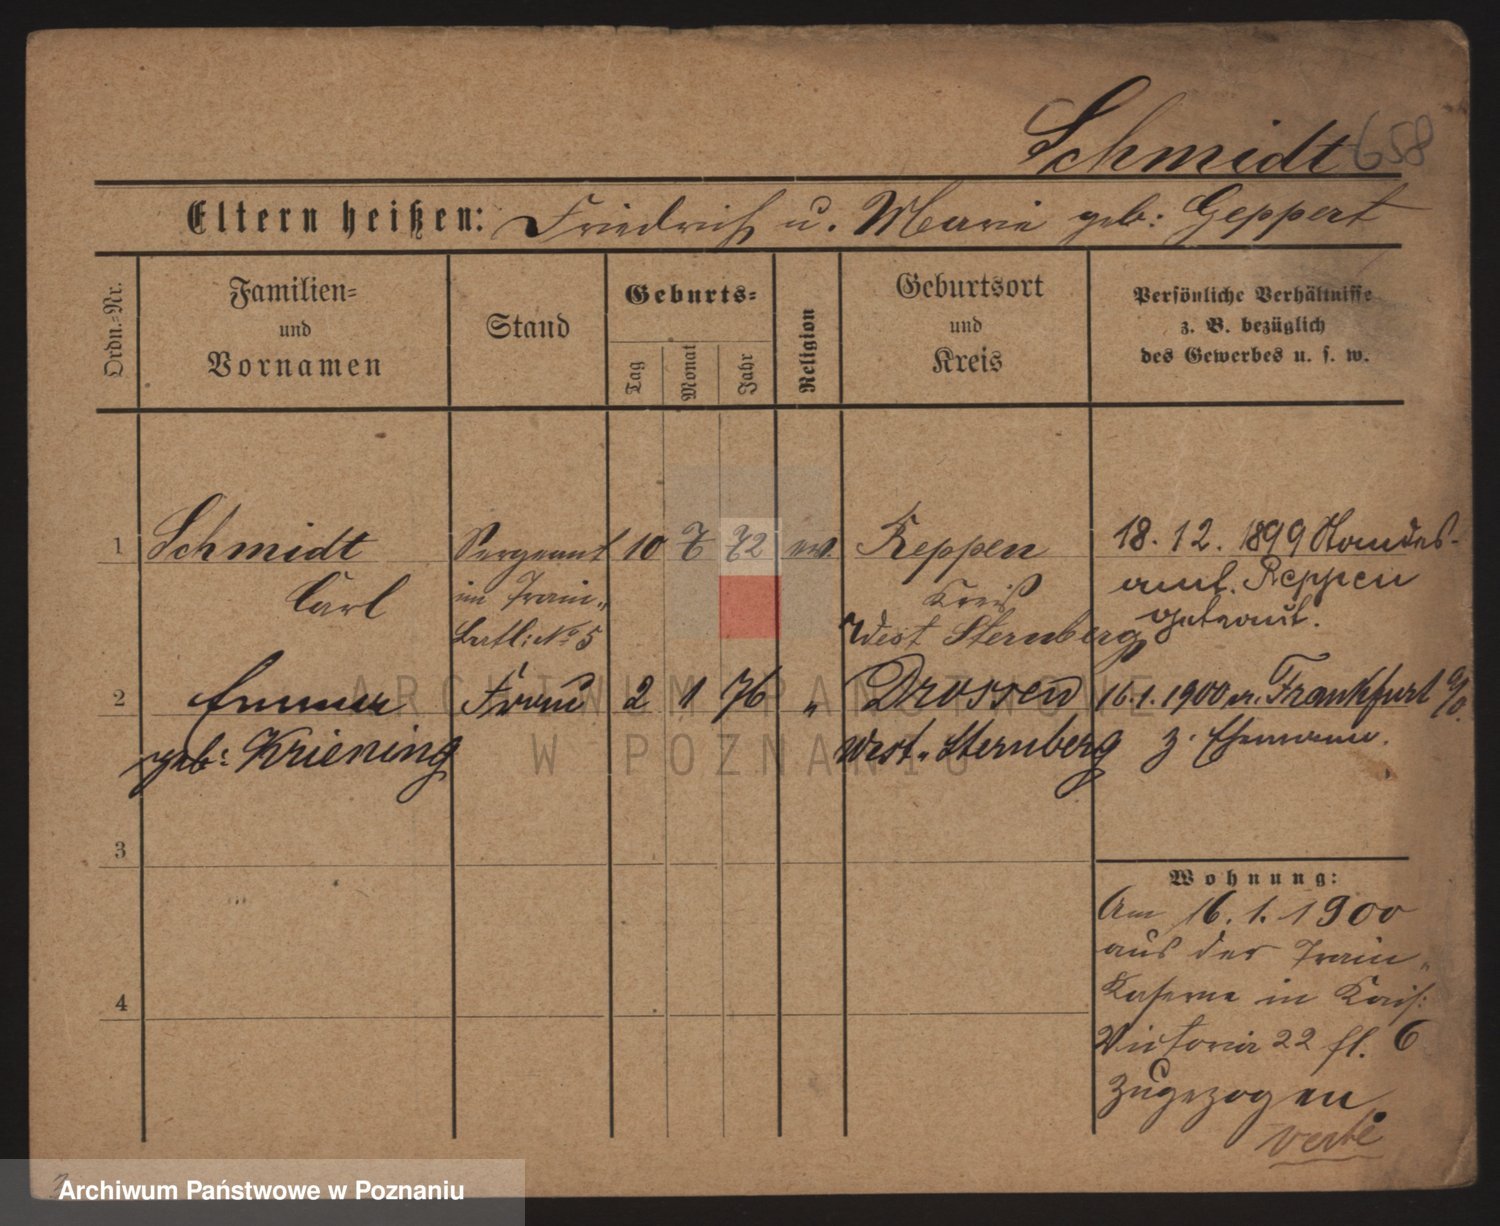 Schmidt 658
Eltern heißen: Friedrich u. Marie geb: Geppert
Ordn.-Nr.
Familien-
und
Vornamen
Stand
Geburts-
Tag
Monat
Jahr
Religion
Geburtsort
und
Kreis
Persönliche Verhältnisse
z. B. bezüglich
des Gewerbes u. s. w.
1 Schmidt Sergeant 10 7 72 ev. Reppen 18. 12. 1899 Standes-
Carl im Train- Kreis amt. Reppen
Batl: No 5 West Sternberg getraut.
2 Emma Frau 2 1 76 " Drossen 16.1.1900 v. Frankfurt a/O.
geb: Kriening West-Sternberg z. Ehemann.
3
4
Wohnung:
Am 16. 1. 1900
aus der Train-
Kaserne in Kais:
Victoria 22 fl. 6
zugezogen
verte
ARCHIWUM PAŃSTWOWE
W POZNANIU
Archiwum Państwowe w Poznaniu